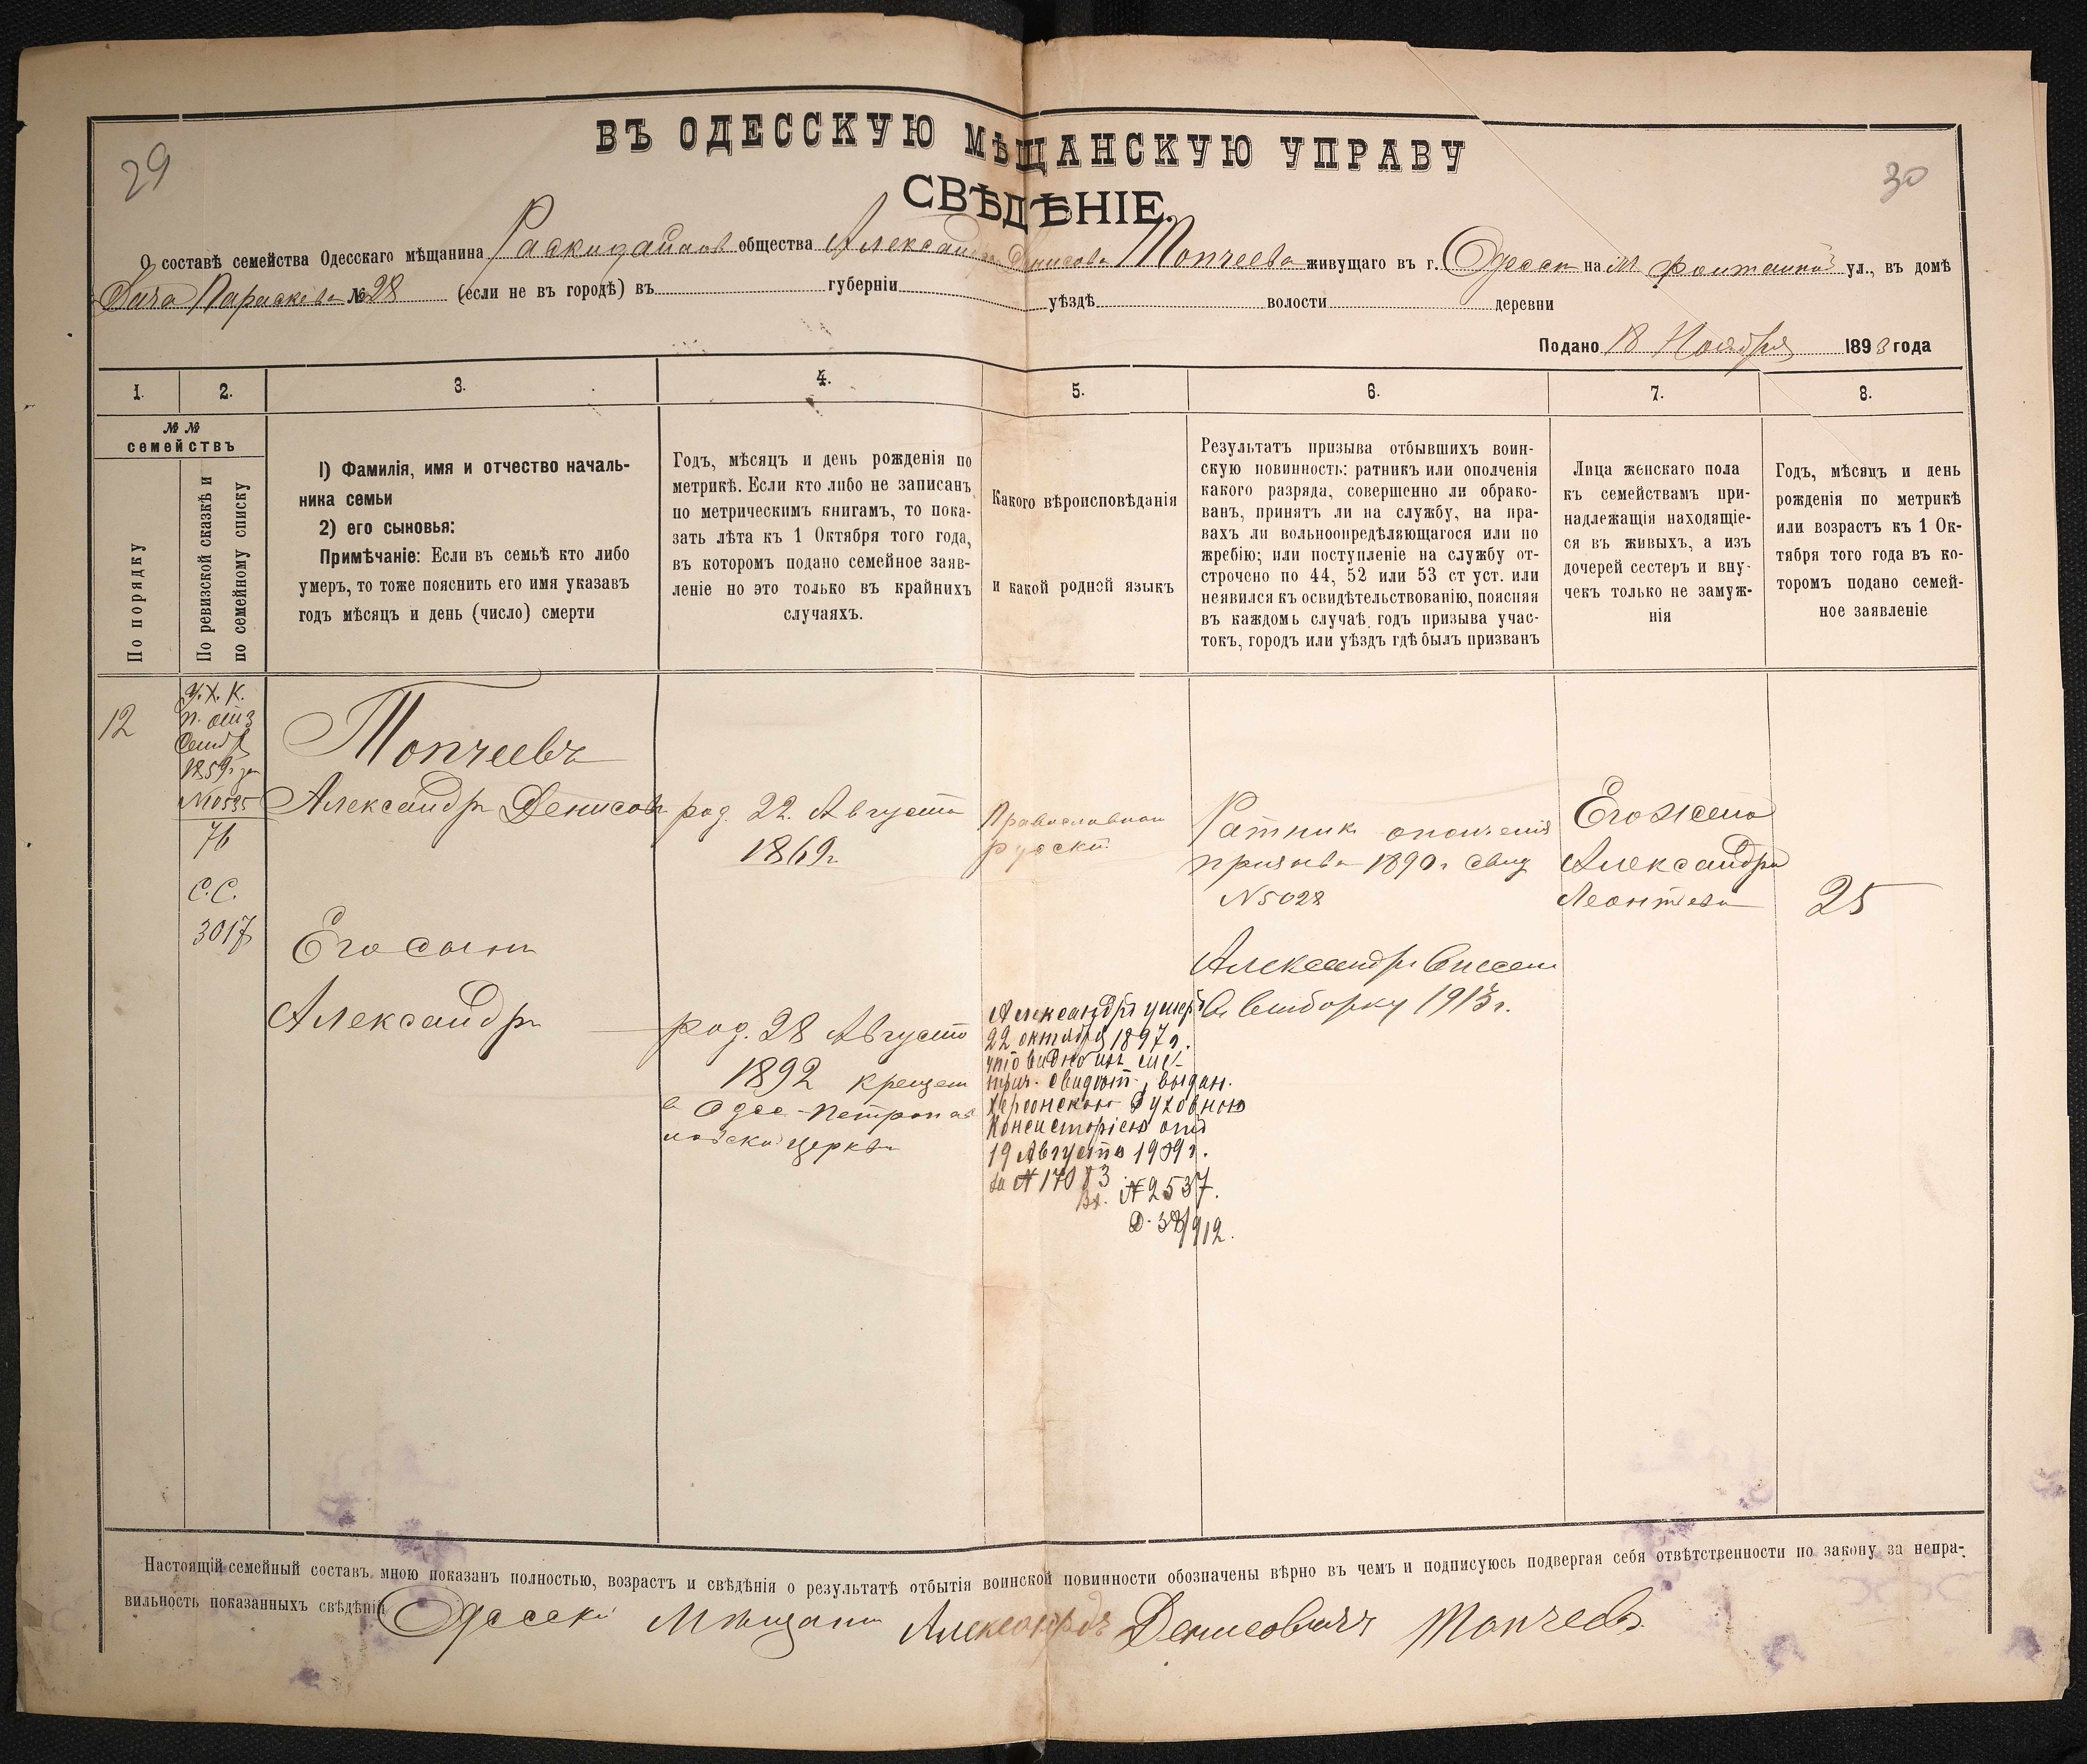 29
30
ВЪ ОДЕССКУЮ МѢЩАНСКУЮ УПРАВУ
СВѢДѢНІЕ.
О составѣ семейства Одесскаго мѣщанина общества Александра Денисова Топчеева живущаго въ г. Одесси на М Фонтанкой ул., въ домѣ
Дача Параскева № 28 (если не въ городѣ) въ губерніи уѣздѣ волости деревни
Подано 18 Ноября 1893 года
1. 2. 3. 4. 5. 6. 7. 8.
№ №
семействъ
По порядку
По ревизской сказкѣ и
по семейному списку
1) Фамилія, имя и отчество началь-
ника семьи
2) его сыновья:
Примѣчаніе: Если въ семьѣ кто либо
умеръ, то тоже пояснить его имя указавъ
годъ мѣсяцъ и день (число) смерти
Годъ, мѣсяцъ и день рожденія по
метрикѣ. Если кто либо не записанъ
по метрическимъ книгамъ, то пока-
зать лѣта къ 1 Октября того года,
въ которомъ подано семейное заяв-
леніе но это только въ крайнихъ
случаяхъ.
Какого вѣроисповѣданія
и какой родной языкъ
Результатъ призыва отбывшихъ воин-
скую повинность: ратникъ или ополченія
какого разряда, совершенно ли обрако-
ванъ, принятъ ли на службу, на пра-
вахъ ли вольноопредѣляющагося или по
жребію; или поступленіе на службу от-
строчено по 44, 52 или 53 ст уст. или
неявился къ освидѣтельствованію, поясняя
въ каждомъ случаѣ годъ призыва учас-
токъ, городъ или уѣздъ гдѣ былъ призванъ
Лица женскаго пола
къ семействамъ при-
надлежащія находящіе-
ся въ живыхъ, а изъ
дочерей сестеръ и вну-
чекъ только не замуж-
нія
Годъ, мѣсяцъ и день
рожденія по метрикѣ
или возрастъ къ 1 Ок-
тября того года въ ко-
торомъ подано семей-
ное заявленіе
12
У.Х.К.
п. от 3
Сентр
1859 г за
№ 10535
76
С.С.
3017
Топчеевъ
Александръ Денисовъ
род. 22. Августа
1869 г.
Православнаи
руски
Ратникъ ополченія
призыва 1890 г. свид
№ 5028
Его жена
Александра
Леонтева
25
Его сынъ
Александръ
род. 28 Августа
1892 крещен
в Одес-Петропав
ловской церкви
Александръ умеръ
22 октября 1897 г.
что видно изъ мет
трич. свидѣт., выдан.
Херсонскою Духовною
Консисторіею отъ
19 Августа 1909 г.
за № 17083
Вх. № 2537.
Д. 38/912.
Александръ внесенъ
въ выборку 1913 г.
Настоящій семейный составъ, мною показанъ полностью, возрастъ и свѣдѣнія о результатѣ отбытія воинской повинности обозначены вѣрно въ чемъ и подписуюсь подвергая себя отвѣтственности по закону за непра-
вильность показанныхъ свѣдѣній Одесски Мѣщани Александръ Денисовичъ Топчеевъ